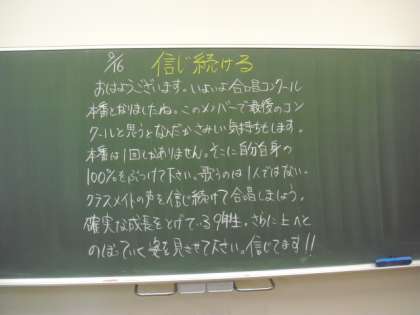 9/16 信じ続ける
おはようございます。いよいよ合唱コンクール
本番となりましたね。このメンバーで最後のコン
クールと思うとなんだかさみしい気持ちもします。
本番は1回しかありません。そこに自分自身の
100%をぶつけて下さい。歌うのは1人ではない。
クラスメイトの声を信じ続けて合唱しましょう。
確実な成長をとげている9年生。さらに上へと
のぼっていく姿を見させて下さい。信じてます!!